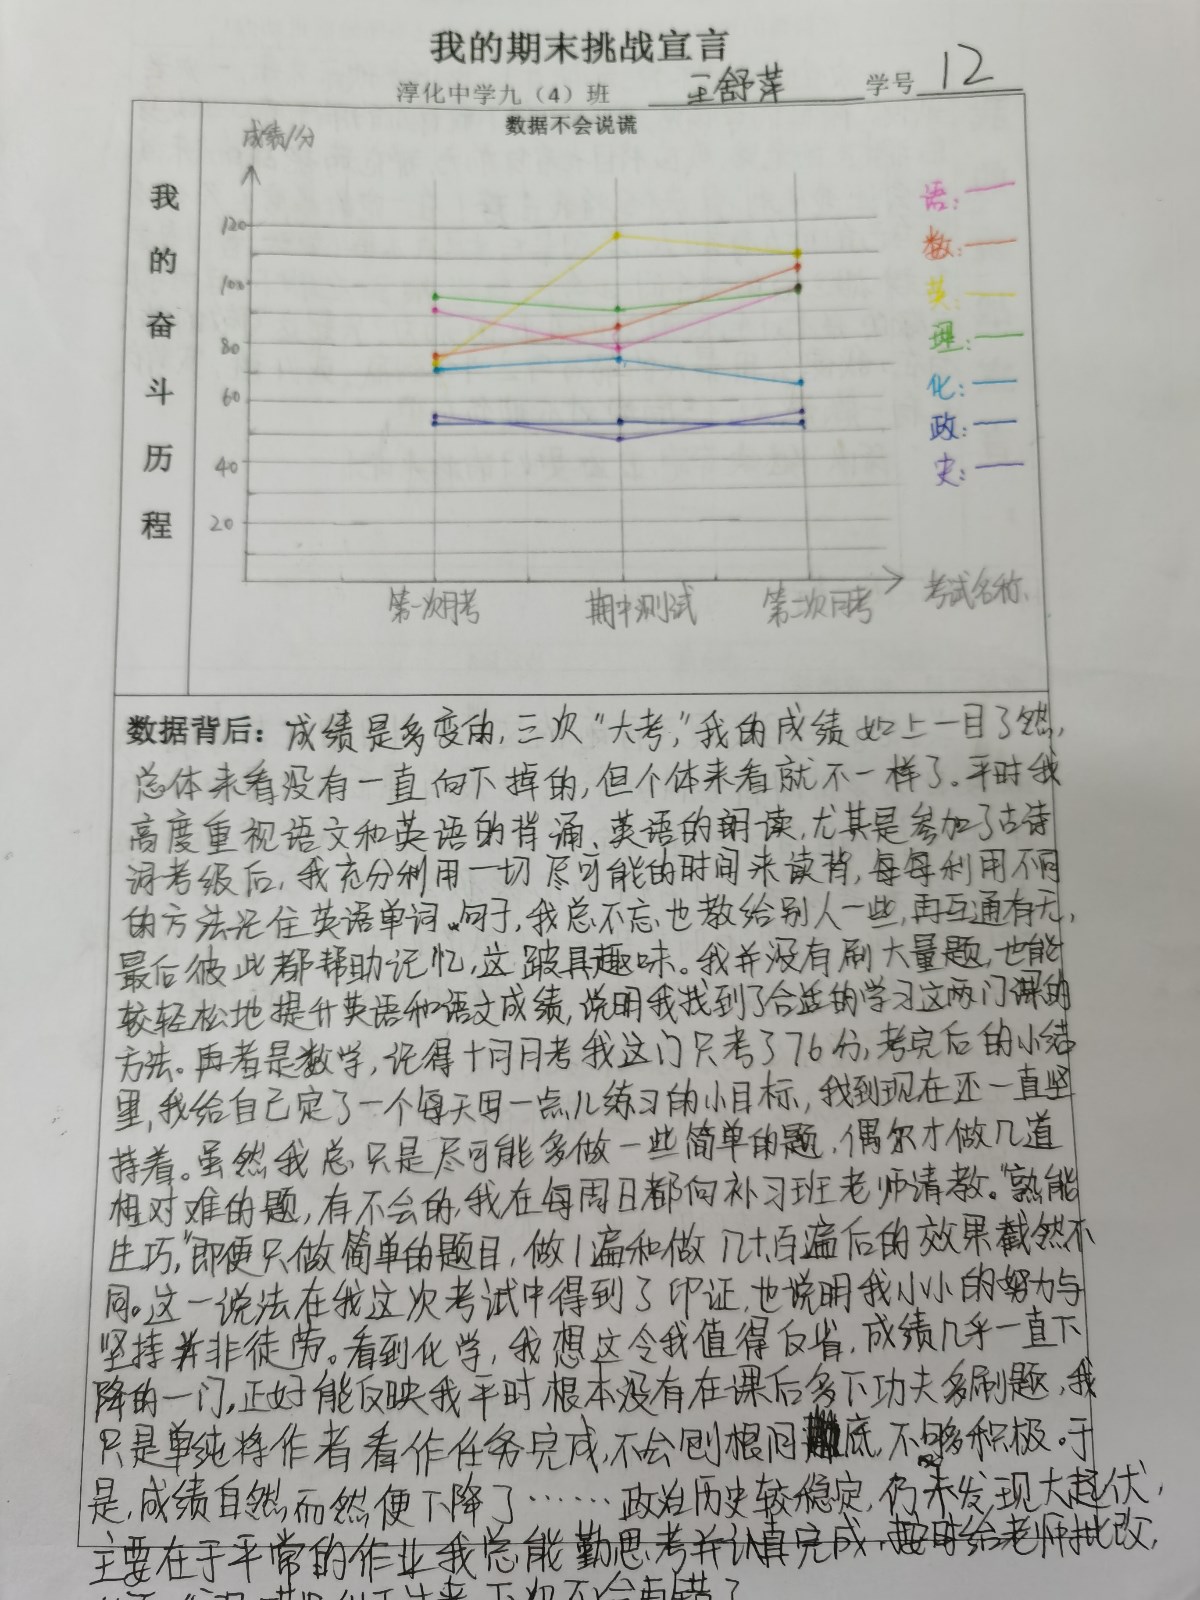 我的期末挑战宣言
淳化中学九（4）班 王舒萍 学号 12
数据不会说谎
我的奋斗历程
成绩/分
120
100
80
60
40
20
第一次月考 期中测试 第二次月考 考试名称
语：
数：
英：
理：
化：
政：
史：
数据背后：成绩是多变的,三次“大考”,我的成绩如上一目了然,
总体来看没有一直向下掉的,但个体来看就不一样了。平时我
高度重视语文和英语的背诵、英语的朗读,尤其是参加了古诗
词考级后,我充分利用一切尽可能的时间来读背,每每利用不同
的方法记住英语单词、句子,我总不忘也教给别人一些,再互通有无,
最后彼此都帮助记忆,这跛具趣味。我并没有刷大量题,也能
较轻松地提升英语和语文成绩,说明我找到了合适的学习这两门课的
方法。再者是数学,记得十月月考我这门只考了76分,考完后的小结
里,我给自己定了一个每天多一点儿练习的小目标,我到现在还一直坚
持着。虽然我总只是尽可能多做一些简单的题,偶尔才做几道
相对难的题,有不会的,我在每周日都向补习班老师请教。“熟能
生巧,”即便只做简单的题目,做1遍和做几十,百遍后的效果截然不
同。这一说法在我这次考试中得到了印证,也说明我小小的努力与
坚持并非徒劳。看到化学,我想这令我值得反省,成绩几乎一直下
降的一门,正好能反映我平时根本没有在课后多下功夫多刷题,我
只是单纯将作者看作任务完成,不会刨根问底,不够积极。于
是,成绩自然而然便下降了……政治历史较稳定,仍未发现大起伏,
主要在于平常的作业我总能勤思考并认真完成,按时给老师批改,
下次不会再错了